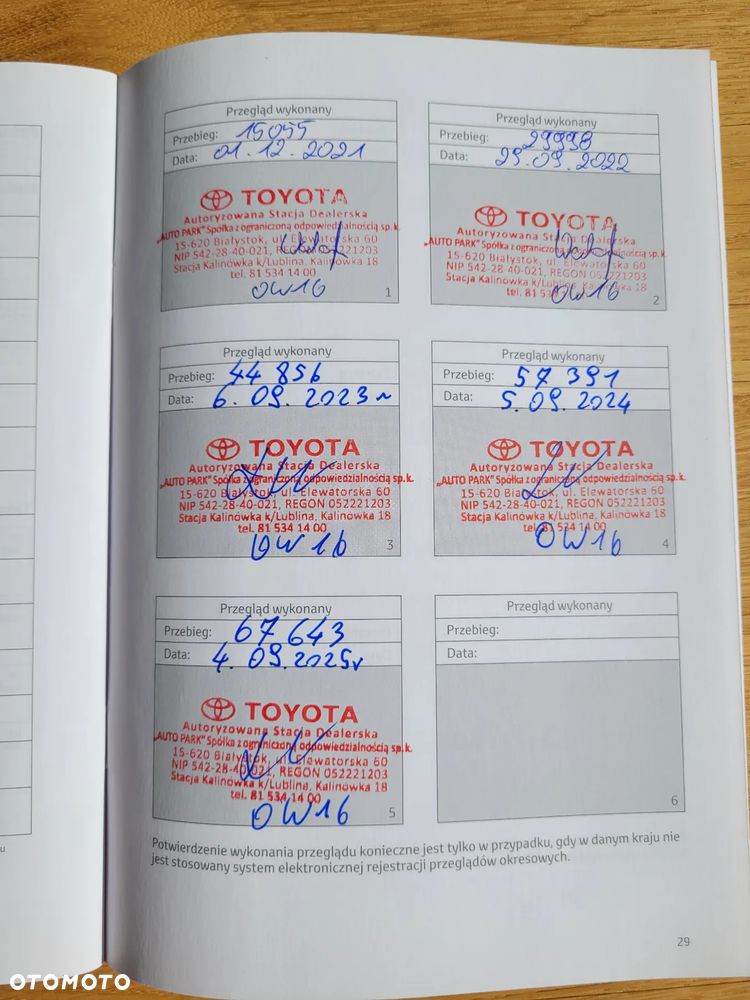 Przegląd wykonany
Przebieg: 15055
Data: 01.12.2021
TOYOTA
Autoryzowana Stacja Dealerska
„AUTO PARK" Spółka z ograniczoną odpowiedzialnością sp.k.
15-620 Białystok, ul. Elewatorska 60
NIP 542-28-40-021, REGON 052221203
Stacja Kalinówka k/Lublina, Kalinówka 18
tel. 81 534 14 00
OW16
1
Przegląd wykonany
Przebieg: 29998
Data: 29.09.2022
TOYOTA
Autoryzowana Stacja Dealerska
„AUTO PARK" Spółka z ograniczoną odpowiedzialnością sp.k.
15-620 Białystok, ul. Elewatorska 60
NIP 542-28-40-021, REGON 052221203
Stacja Kalinówka k/Lublina, Kalinówka 18
tel. 81 534 14 00
OW16
2
Przegląd wykonany
Przebieg: 44 856
Data: 6.09.2023r
TOYOTA
Autoryzowana Stacja Dealerska
„AUTO PARK" Spółka z ograniczoną odpowiedzialnością sp.k.
15-620 Białystok, ul. Elewatorska 60
NIP 542-28-40-021, REGON 052221203
Stacja Kalinówka k/Lublina, Kalinówka 18
tel. 81 534 14 00
OW16
3
Przegląd wykonany
Przebieg: 57 391
Data: 5.09.2024
TOYOTA
Autoryzowana Stacja Dealerska
„AUTO PARK" Spółka z ograniczoną odpowiedzialnością sp.k.
15-620 Białystok, ul. Elewatorska 60
NIP 542-28-40-021, REGON 052221203
Stacja Kalinówka k/Lublina, Kalinówka 18
tel. 81 534 14 00
OW16
4
Przegląd wykonany
Przebieg: 67 643
Data: 4.09.2025r
TOYOTA
Autoryzowana Stacja Dealerska
„AUTO PARK" Spółka z ograniczoną odpowiedzialnością sp.k.
15-620 Białystok, ul. Elewatorska 60
NIP 542-28-40-021, REGON 052221203
Stacja Kalinówka k/Lublina, Kalinówka 18
tel. 81 534 14 00
OW16
5
Przegląd wykonany
Przebieg:
Data:
6
Potwierdzenie wykonania przeglądu konieczne jest tylko w przypadku, gdy w danym kraju nie
jest stosowany system elektronicznej rejestracji przeglądów okresowych.
29
OTOMOTO